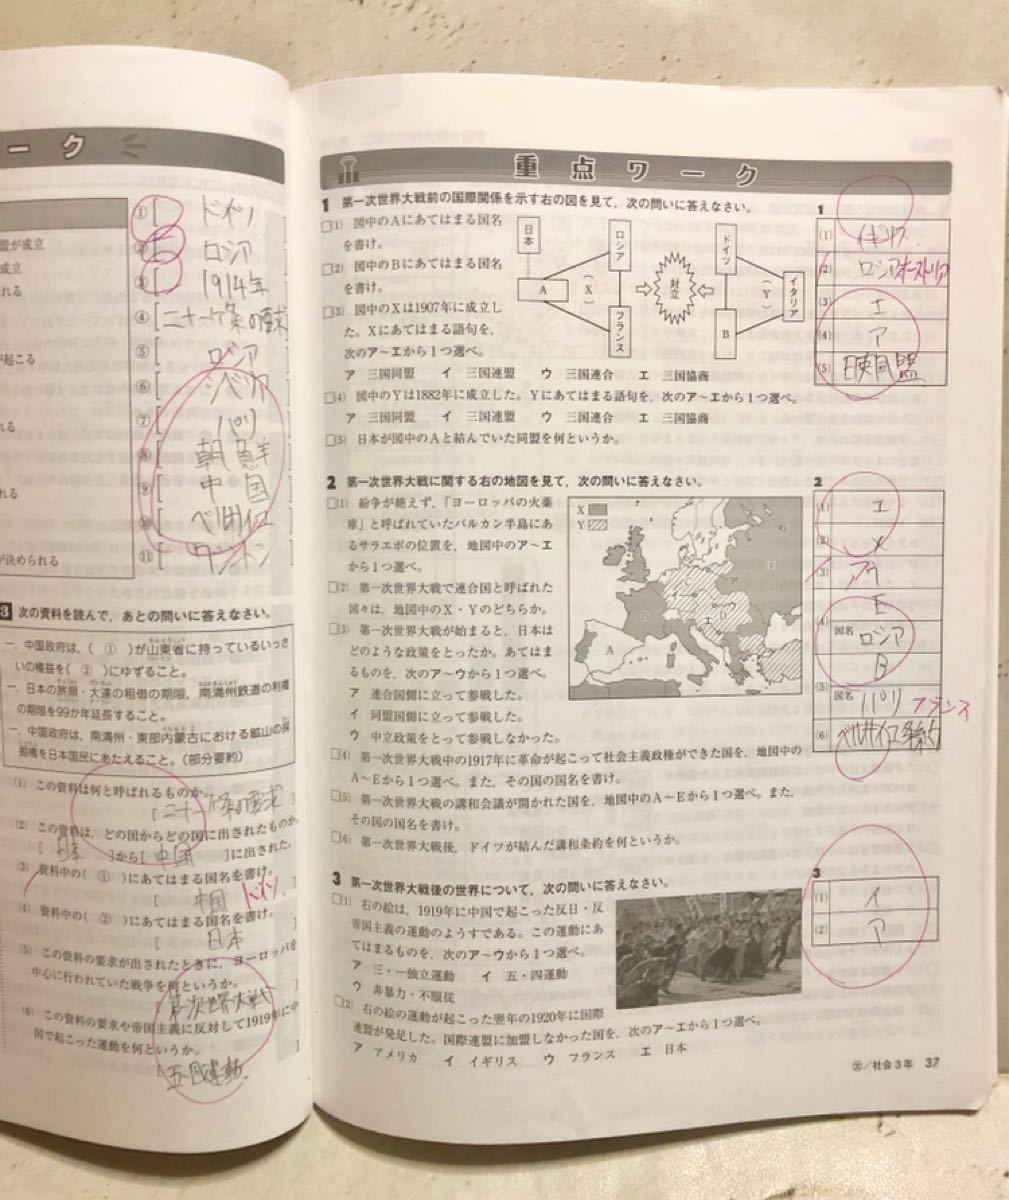 ーク
盟が成立
成立
れる
が起こる
れる
れる
が決められる
①[ ドイツ ]
②[ ロシア ]
③[ 1914年 ]
④[ 二十一ヶ条の要求 ]
⑤[ ロシア ]
⑥[ シベリア ]
⑦[ パリ ]
⑧[ 朝鮮 ]
⑨[ 中国 ]
⑩[ ベルサイユ ]
⑪[ ワシントン ]
3 次の資料を読んで，あとの問いに答えなさい。
一．中国政府は，( ① )が山東省に持っているいっさ
いの権益を( ② )にゆずること。
一．日本の旅順・大連の租借の期限，南満州鉄道の利権
の期限を99か年延長すること。
一．中国政府は，南満州・東部内蒙古における鉱山の採
掘権を日本国民にあたえること。(部分要約)
(1) この資料は何と呼ばれるものか。
[ 二十一ヶ条の要求 ]
(2) この資料は，どの国からどの国に出されたものか。
[ 日本 ]から[ 中国 ]に出された。
(3) 資料中の( ① )にあてはまる国名を書け。
[ 中国 ドイツ ]
(4) 資料中の( ② )にあてはまる国名を書け。
[ 日本 ]
(5) この資料の要求が出されたときに，ヨーロッパを
中心に行われていた戦争を何というか。
[ 第一次世界大戦 ]
(6) この資料の要求や帝国主義に反対して1919年に中
国で起こった運動を何というか。
[ 五・四運動 ]
重点ワーク
1 第一次世界大戦前の国際関係を示す右の図を見て，次の問いに答えなさい。
□(1) 図中のAにあてはまる国名
を書け。
□(2) 図中のBにあてはまる国名
を書け。
□(3) 図中のXは1907年に成立し
た。Xにあてはまる語句を，
次のア〜エから1つ選べ。
ア 三国同盟 イ 三国連盟 ウ 三国連合 エ 三国協商
□(4) 図中のYは1882年に成立した。Yにあてはまる語句を，次のア〜エから1つ選べ。
ア 三国同盟 イ 三国連盟 ウ 三国連合 エ 三国協商
□(5) 日本が図中のAと結んでいた同盟を何というか。
日本
A
ロシア
(X)
フランス
対立
ドイツ
(Y)
B
イタリア
1
(1) イギリス
(2) ロシア オーストリア
(3) エ
(4) ア
(5) 日英同盟
2 第一次世界大戦に関する右の地図を見て，次の問いに答えなさい。
□(1) 紛争が絶えず，「ヨーロッパの火薬
庫」と呼ばれていたバルカン半島にあ
るサラエボの位置を，地図中のア〜エ
から1つ選べ。
□(2) 第一次世界大戦で連合国と呼ばれた
国々は，地図中のX・Yのどちらか。
□(3) 第一次世界大戦が始まると，日本は
どのような政策をとったか。あてはま
るものを，次のア〜ウから1つ選べ。
ア 連合国側に立って参戦した。
イ 同盟国側に立って参戦した。
ウ 中立政策をとって参戦しなかった。
□(4) 第一次世界大戦中の1917年に革命が起こって社会主義政権ができた国を，地図中の
A〜Eから1つ選べ。また，その国の国名を書け。
□(5) 第一次世界大戦の講和会議が開かれた国を，地図中のA〜Eから1つ選べ。また，
その国の国名を書け。
□(6) 第一次世界大戦後，ドイツが結んだ講和条約を何というか。
X
Y
A
B
D
E
ア
イ
ウ
エ
2
(1) エ
(2) X
(3) ウ ア
(4) E
国名 ロシア
(5) B
国名 パリ フランス
(6) ベルサイユ条約
3 第一次世界大戦後の世界について，次の問いに答えなさい。
□(1) 右の絵は，1919年に中国で起こった反日・反
帝国主義の運動のようすである。この運動にあ
てはまるものを，次のア〜ウから1つ選べ。
ア 三・一独立運動 イ 五・四運動
ウ 非暴力・不服従
□(2) 右の絵の運動が起こった翌年の1920年に国際
連盟が発足した。国際連盟に加盟しなかった国を，次のア〜エから1つ選べ。
ア アメリカ イ イギリス ウ フランス エ 日本
3
(1) イ
(2) ア
㊛／社会3年 37